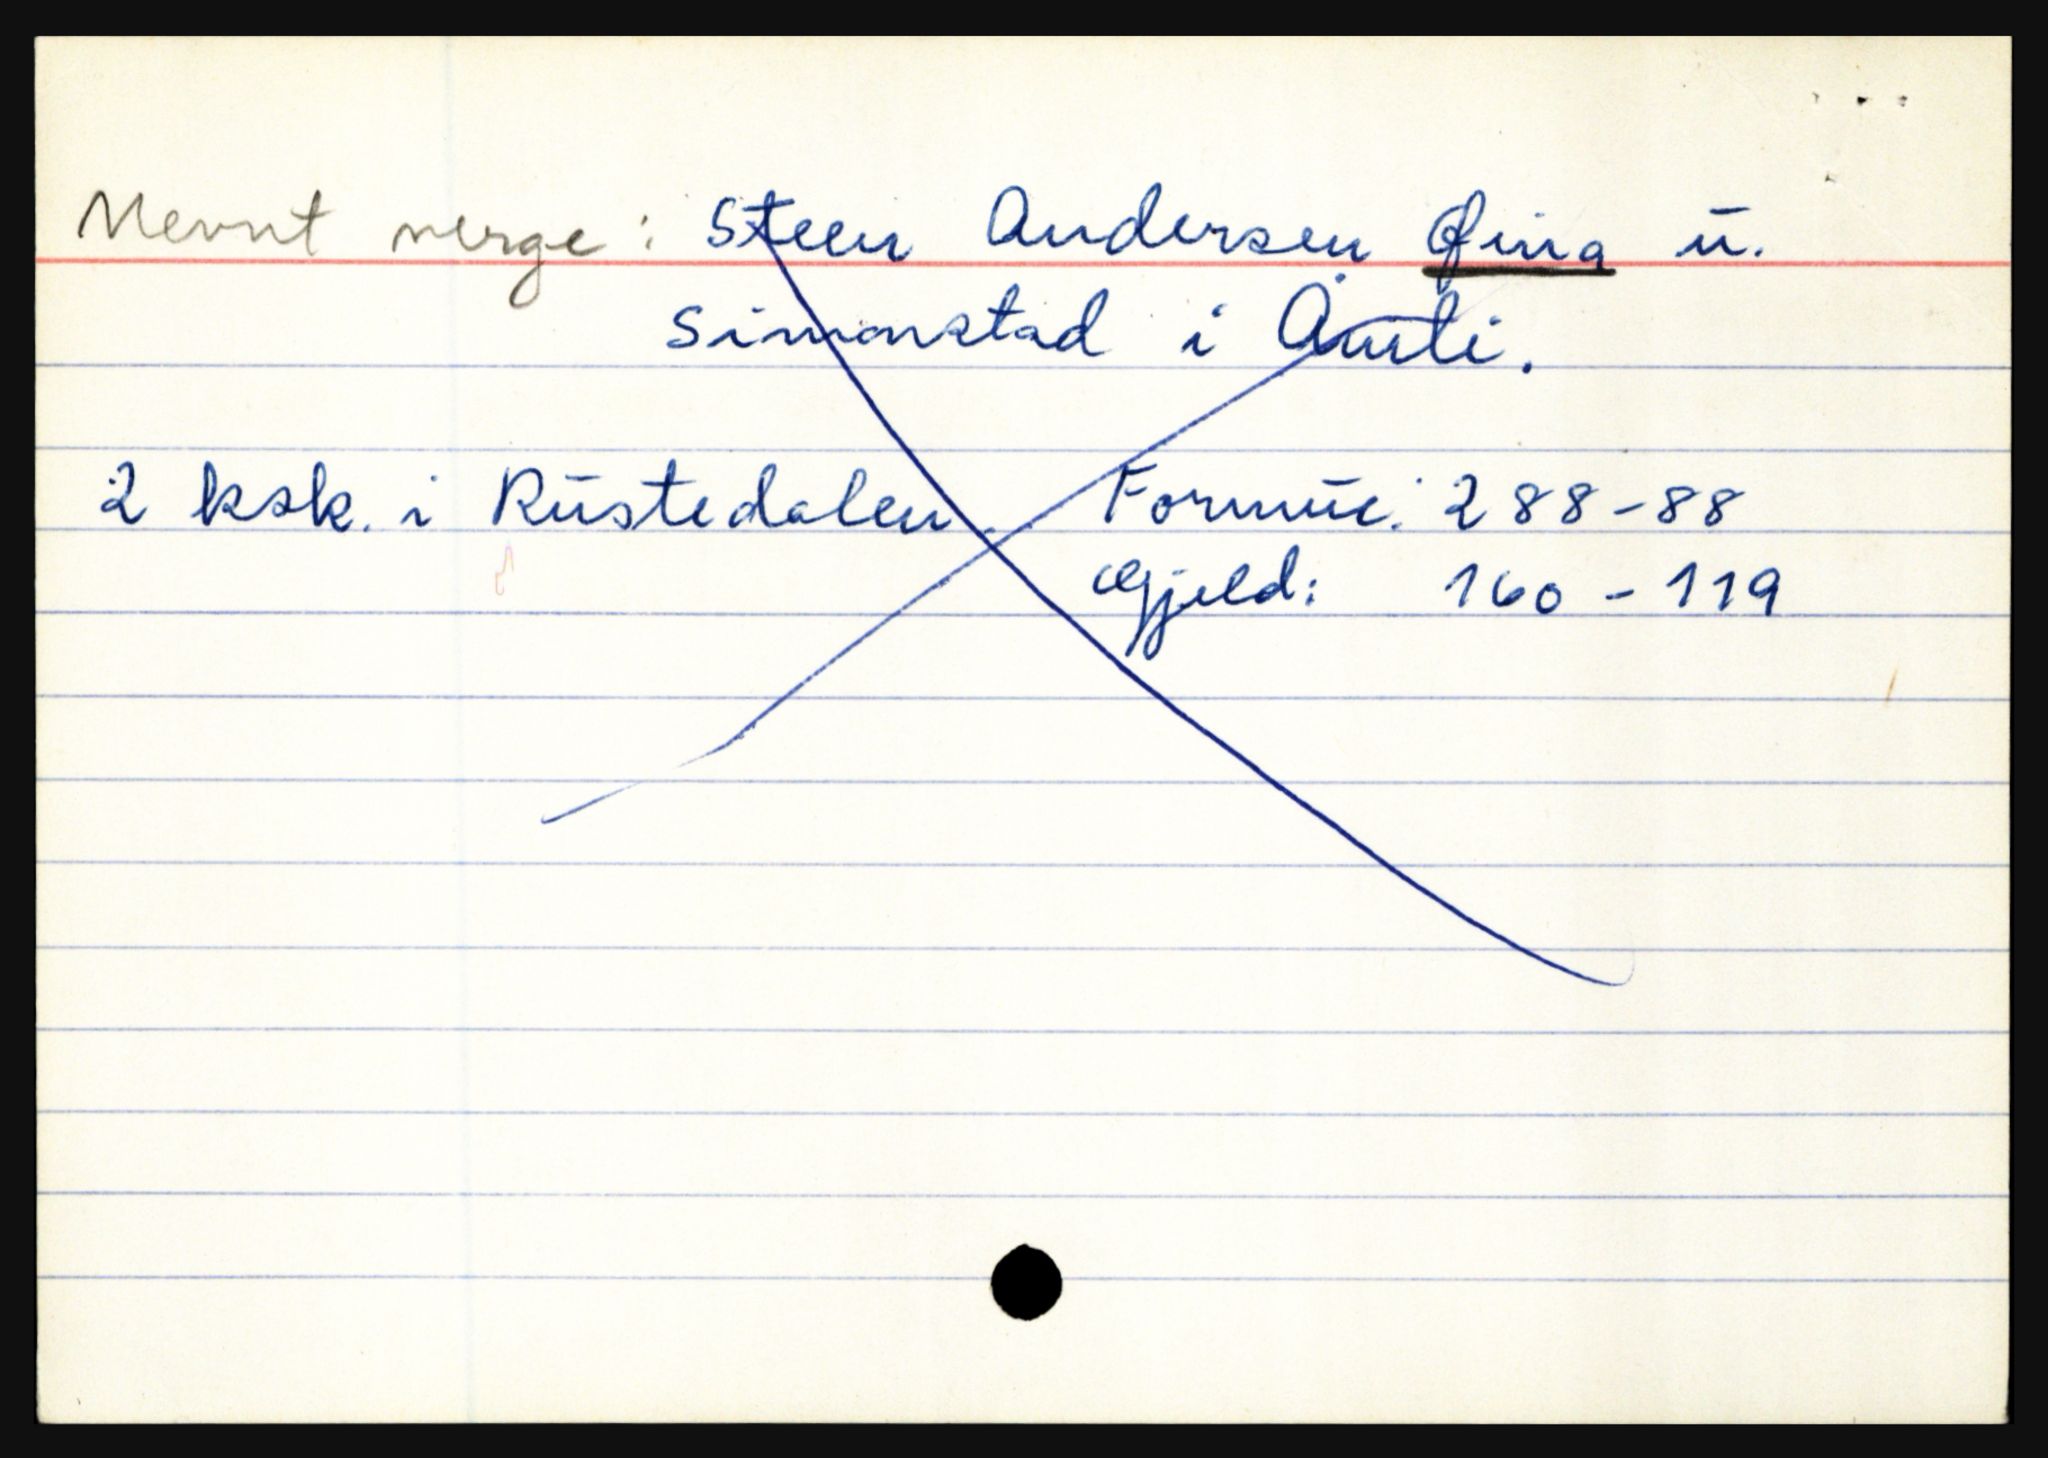 Nevnt verge: Steen Andersen Øina u.
Simonstad i Åmli.
2 ksk. i Rustedalen. Formue: 288-88
Gjeld: 160-119